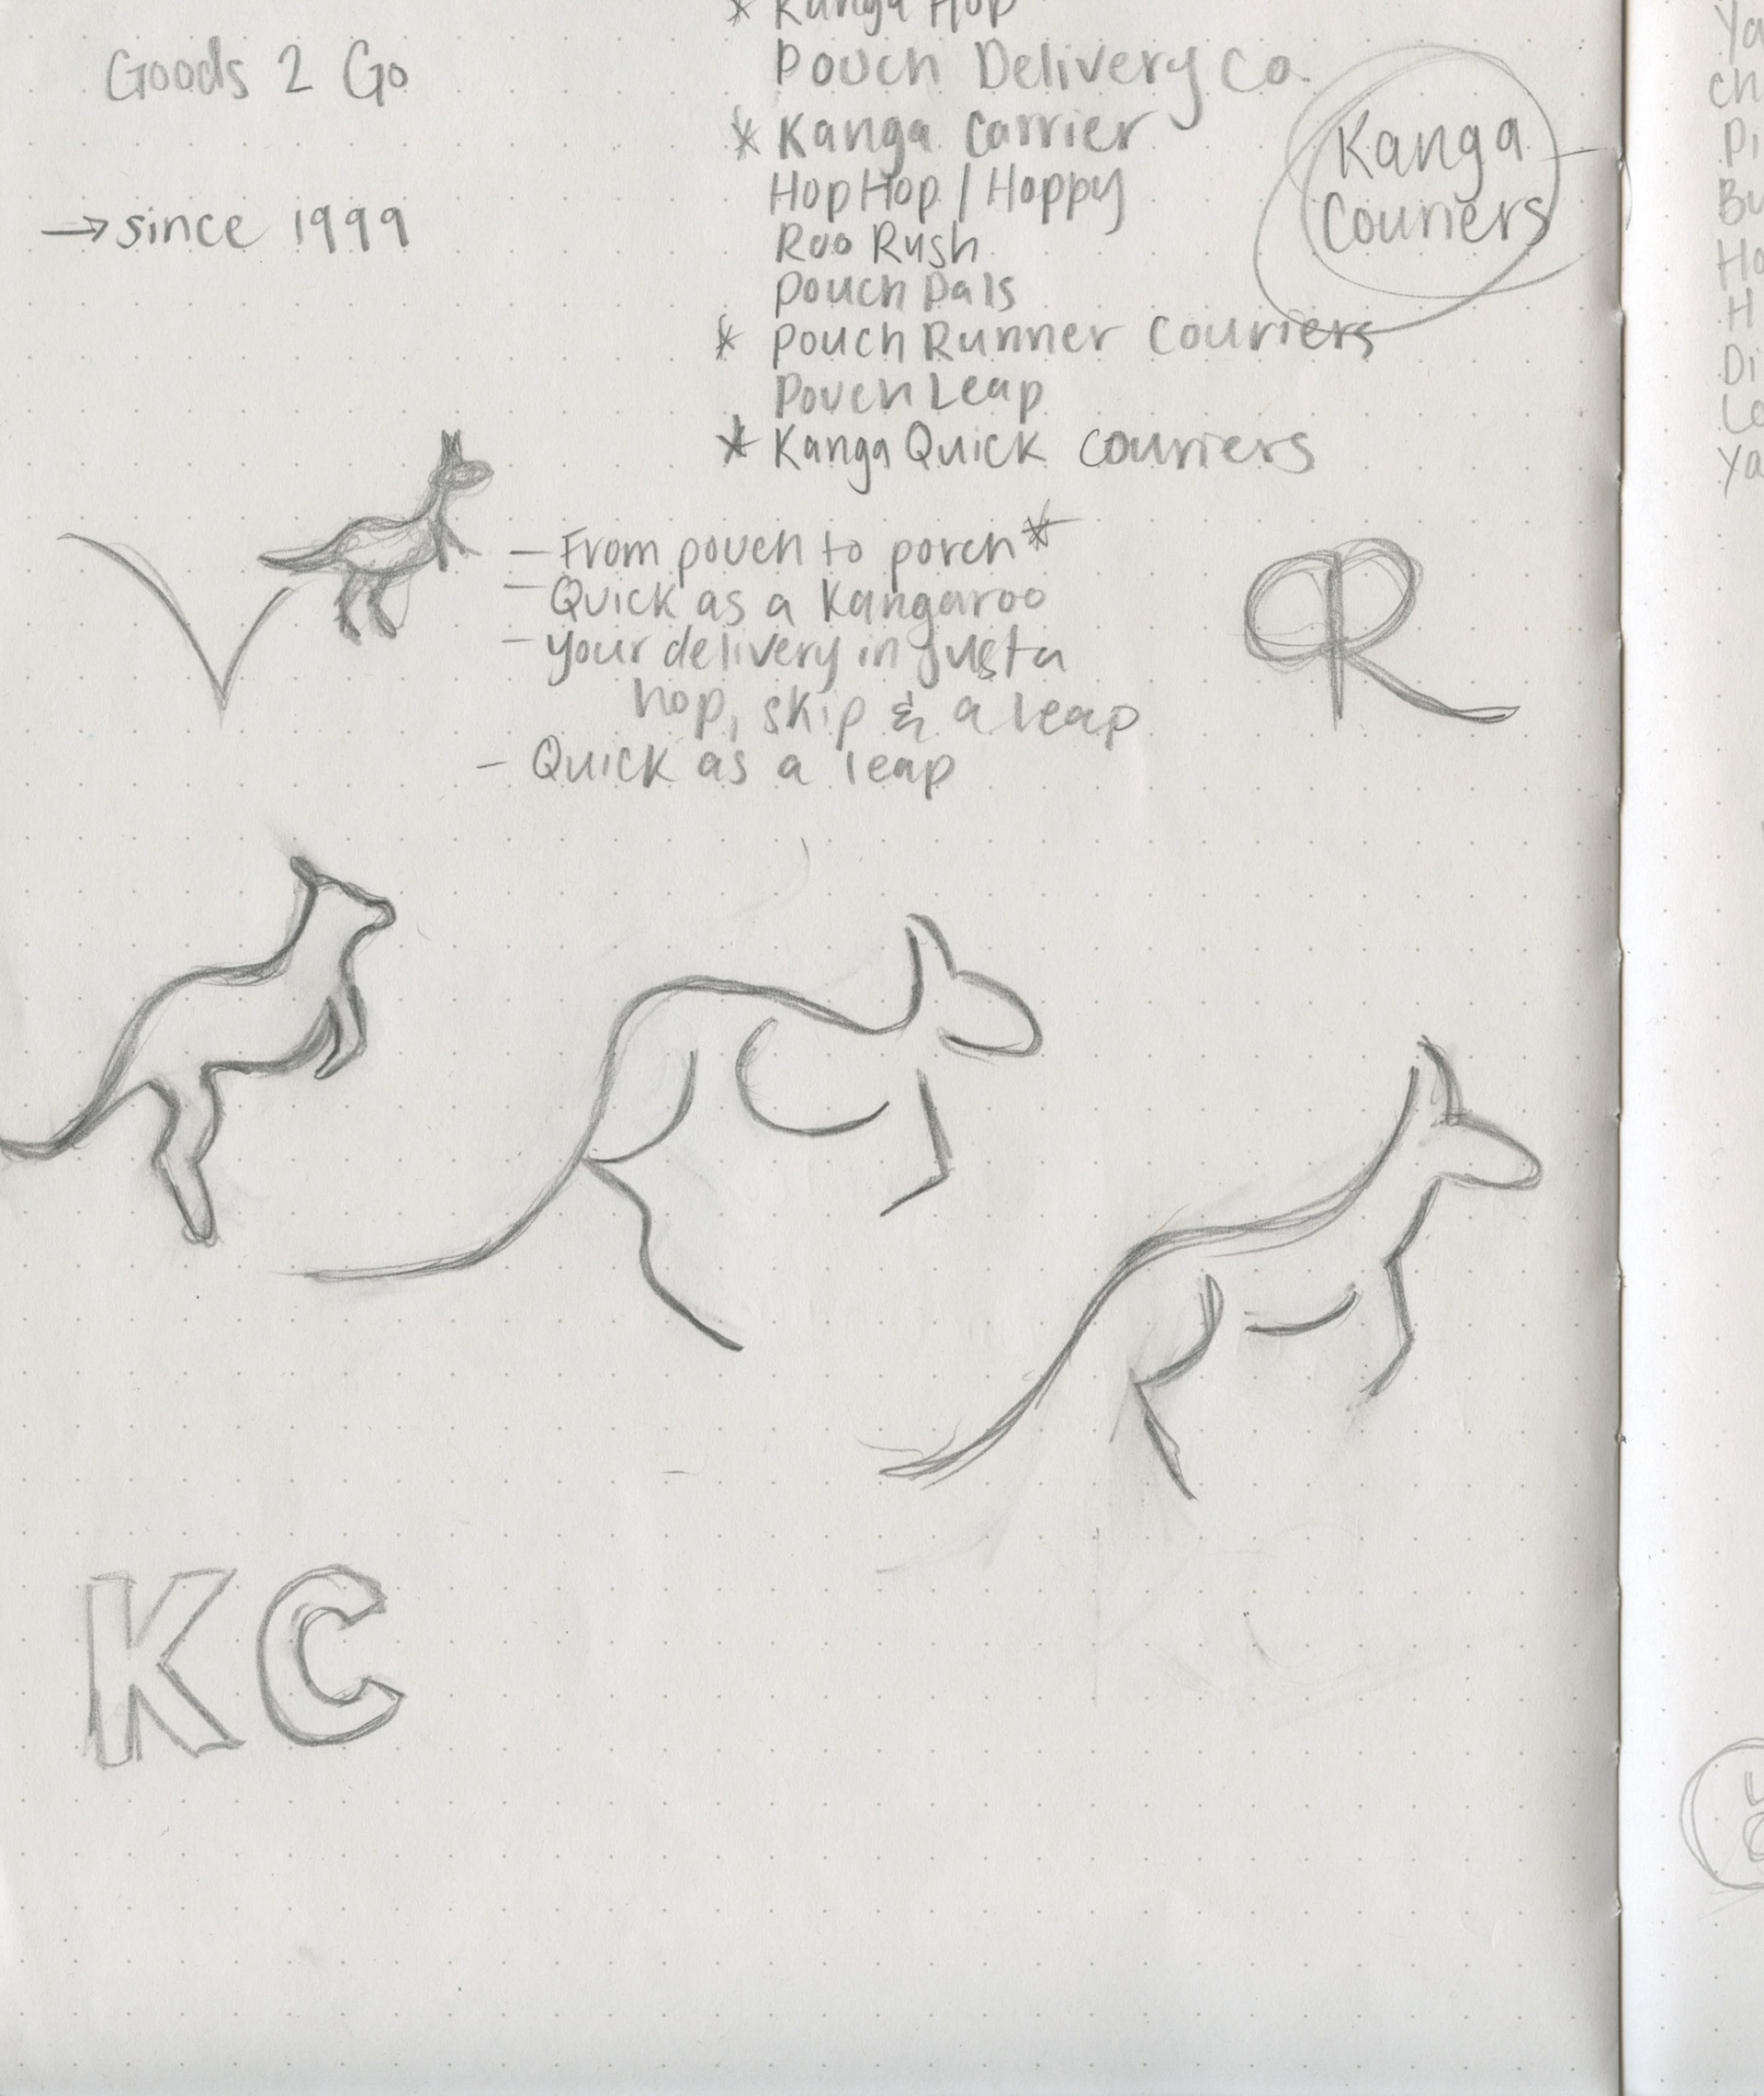 * Kanga Hop
Goods 2 Go
Pouch Delivery Co.
* Kanga Carrier
HopHop / Hoppy
Kanga
Couriers
→ since 1999
Roo Rush
Pouch Pals
* Pouch Runner Couriers
Pouch Leap
* Kanga Quick Couriers
- From pouch to porch *
- Quick as a Kangaroo
- Your delivery in justa
hop, skip & a leap
- Quick as a leap
R
KC
Ya
Ch
Pi
Bu
Ho
H
Di
Ya